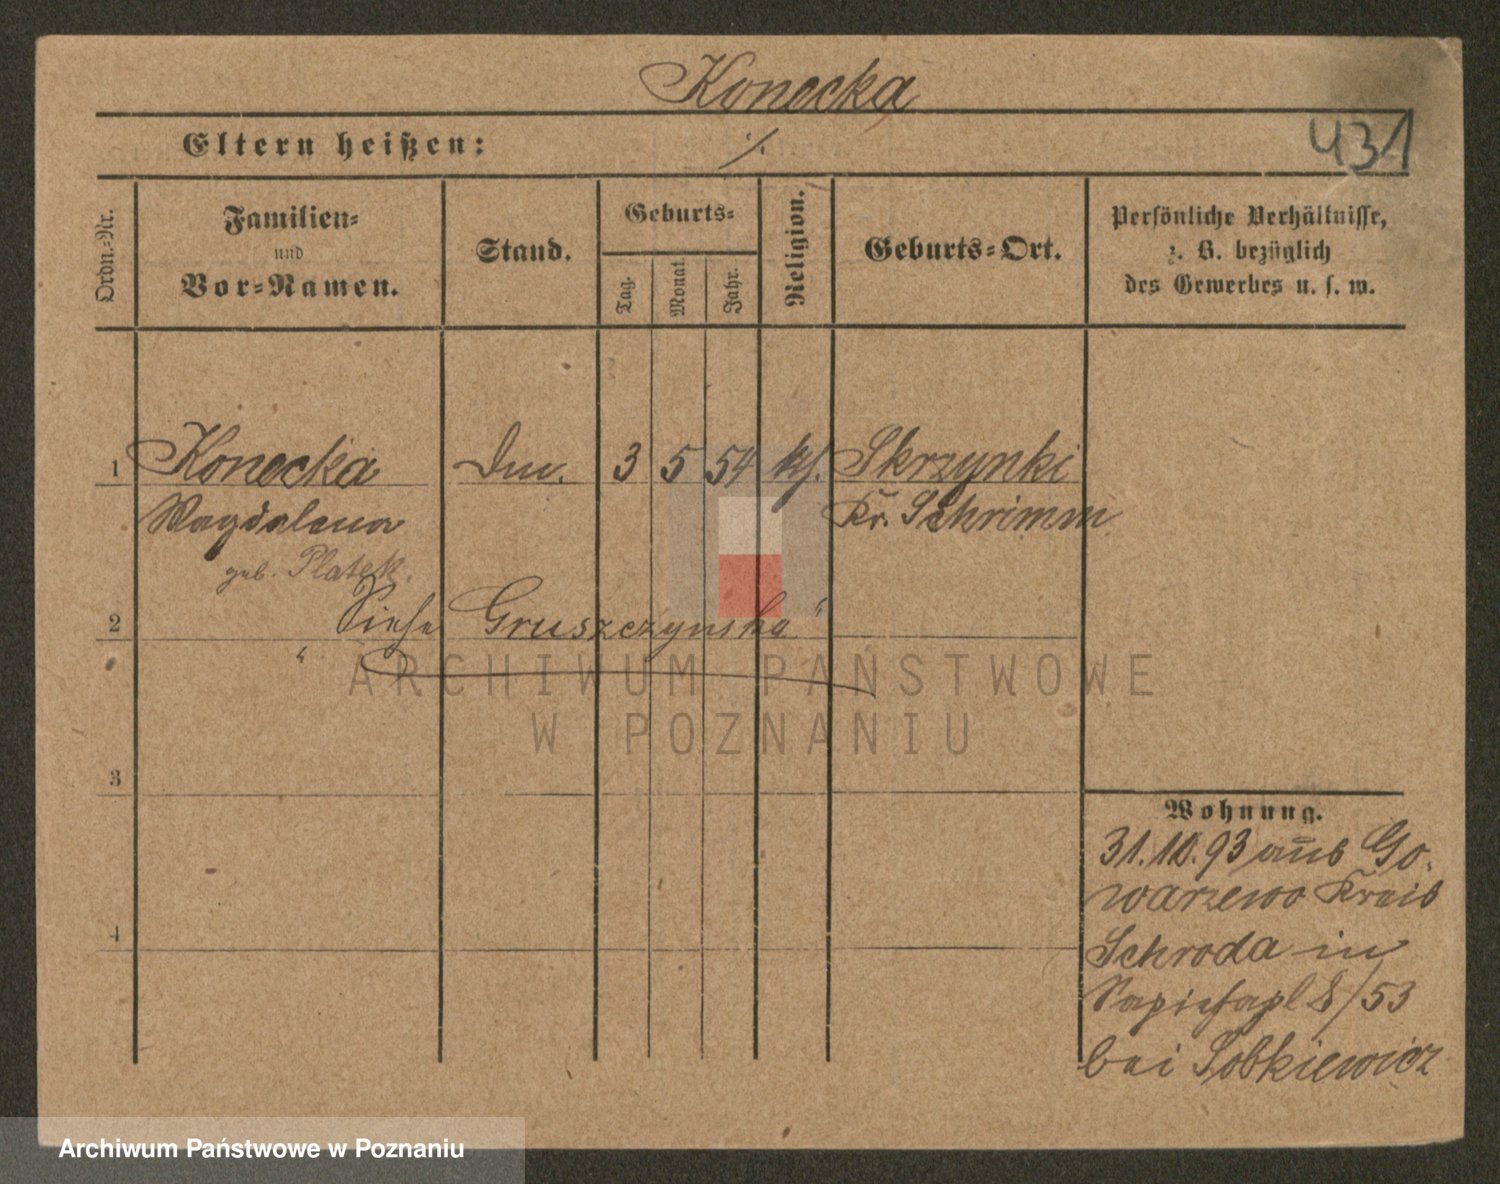 Konecka
Eltern heißen: ./.
431
Ordn.-Nr.
Familien-
und
Vor-Namen.
Stand.
Geburts-
Tag.
Monat.
Jahr.
Religion.
Geburts-Ort.
Persönliche Verhältnisse,
z. B. bezüglich
des Gewerbes u. s. w.
1 Konecka 3 5 54 kf. Skrzynki
Magdalena Kr. Schrimm
geb. Platek.
2 Siehe Gruszczynska"
3
4
Wohnung.
31.10.93 aus Go-
warzewo Kreis
Schroda in
Sapiehapl 8/53
bei Sobkiewicz
ARCHIWUM PAŃSTWOWE
W POZNANIU
Archiwum Państwowe w Poznaniu